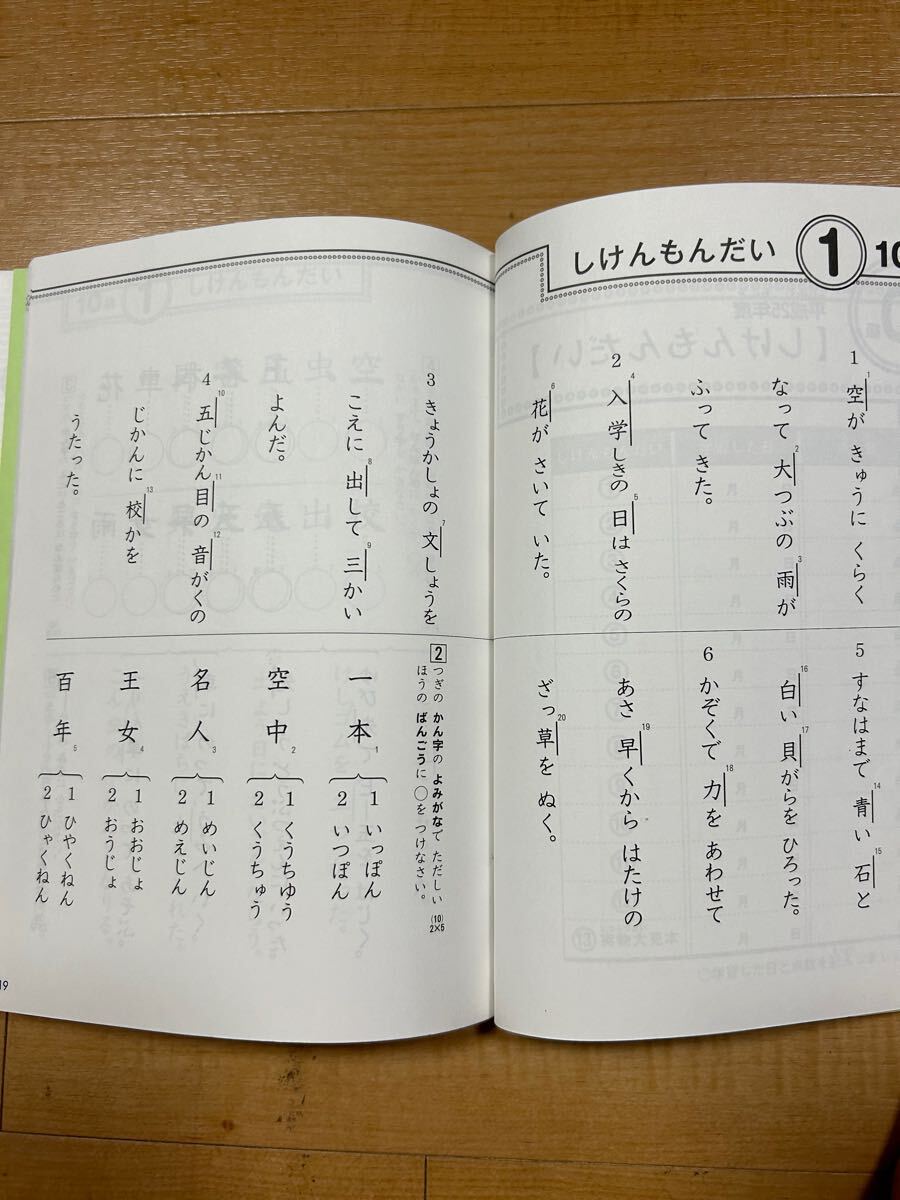 しけんもんだい 1 10
1 空1が きゅうに くらく
なって 大2つぶの 雨3が
ふって きた。
2 入学4しきの 日5は さくらの
花6が さいて いた。
3 きょうかしょの 文7しょうを
こえに 出8して 三9かい
よんだ。
4 五10じかん目11の 音12がくの
じかんに 校13かを
うたった。
5 すなはまで 青14い 石15と
白16い 貝17がらを ひろった。
6 かぞくで 力18を あわせて
あさ 早19くから はたけの
ざっ草20を ぬく。
2 つぎの かん字の よみがなで ただしい
ほうの ばんごうに ○を つけなさい。 (10) 2×5
一本1 1 いっぽん
2 いつぽん
空中2 1 くうちゆう
2 くうちゅう
名人3 1 めいじん
2 めえじん
王女4 1 おおじょ
2 おうじょ
百年5 1 ひやくねん
2 ひゃくねん
19